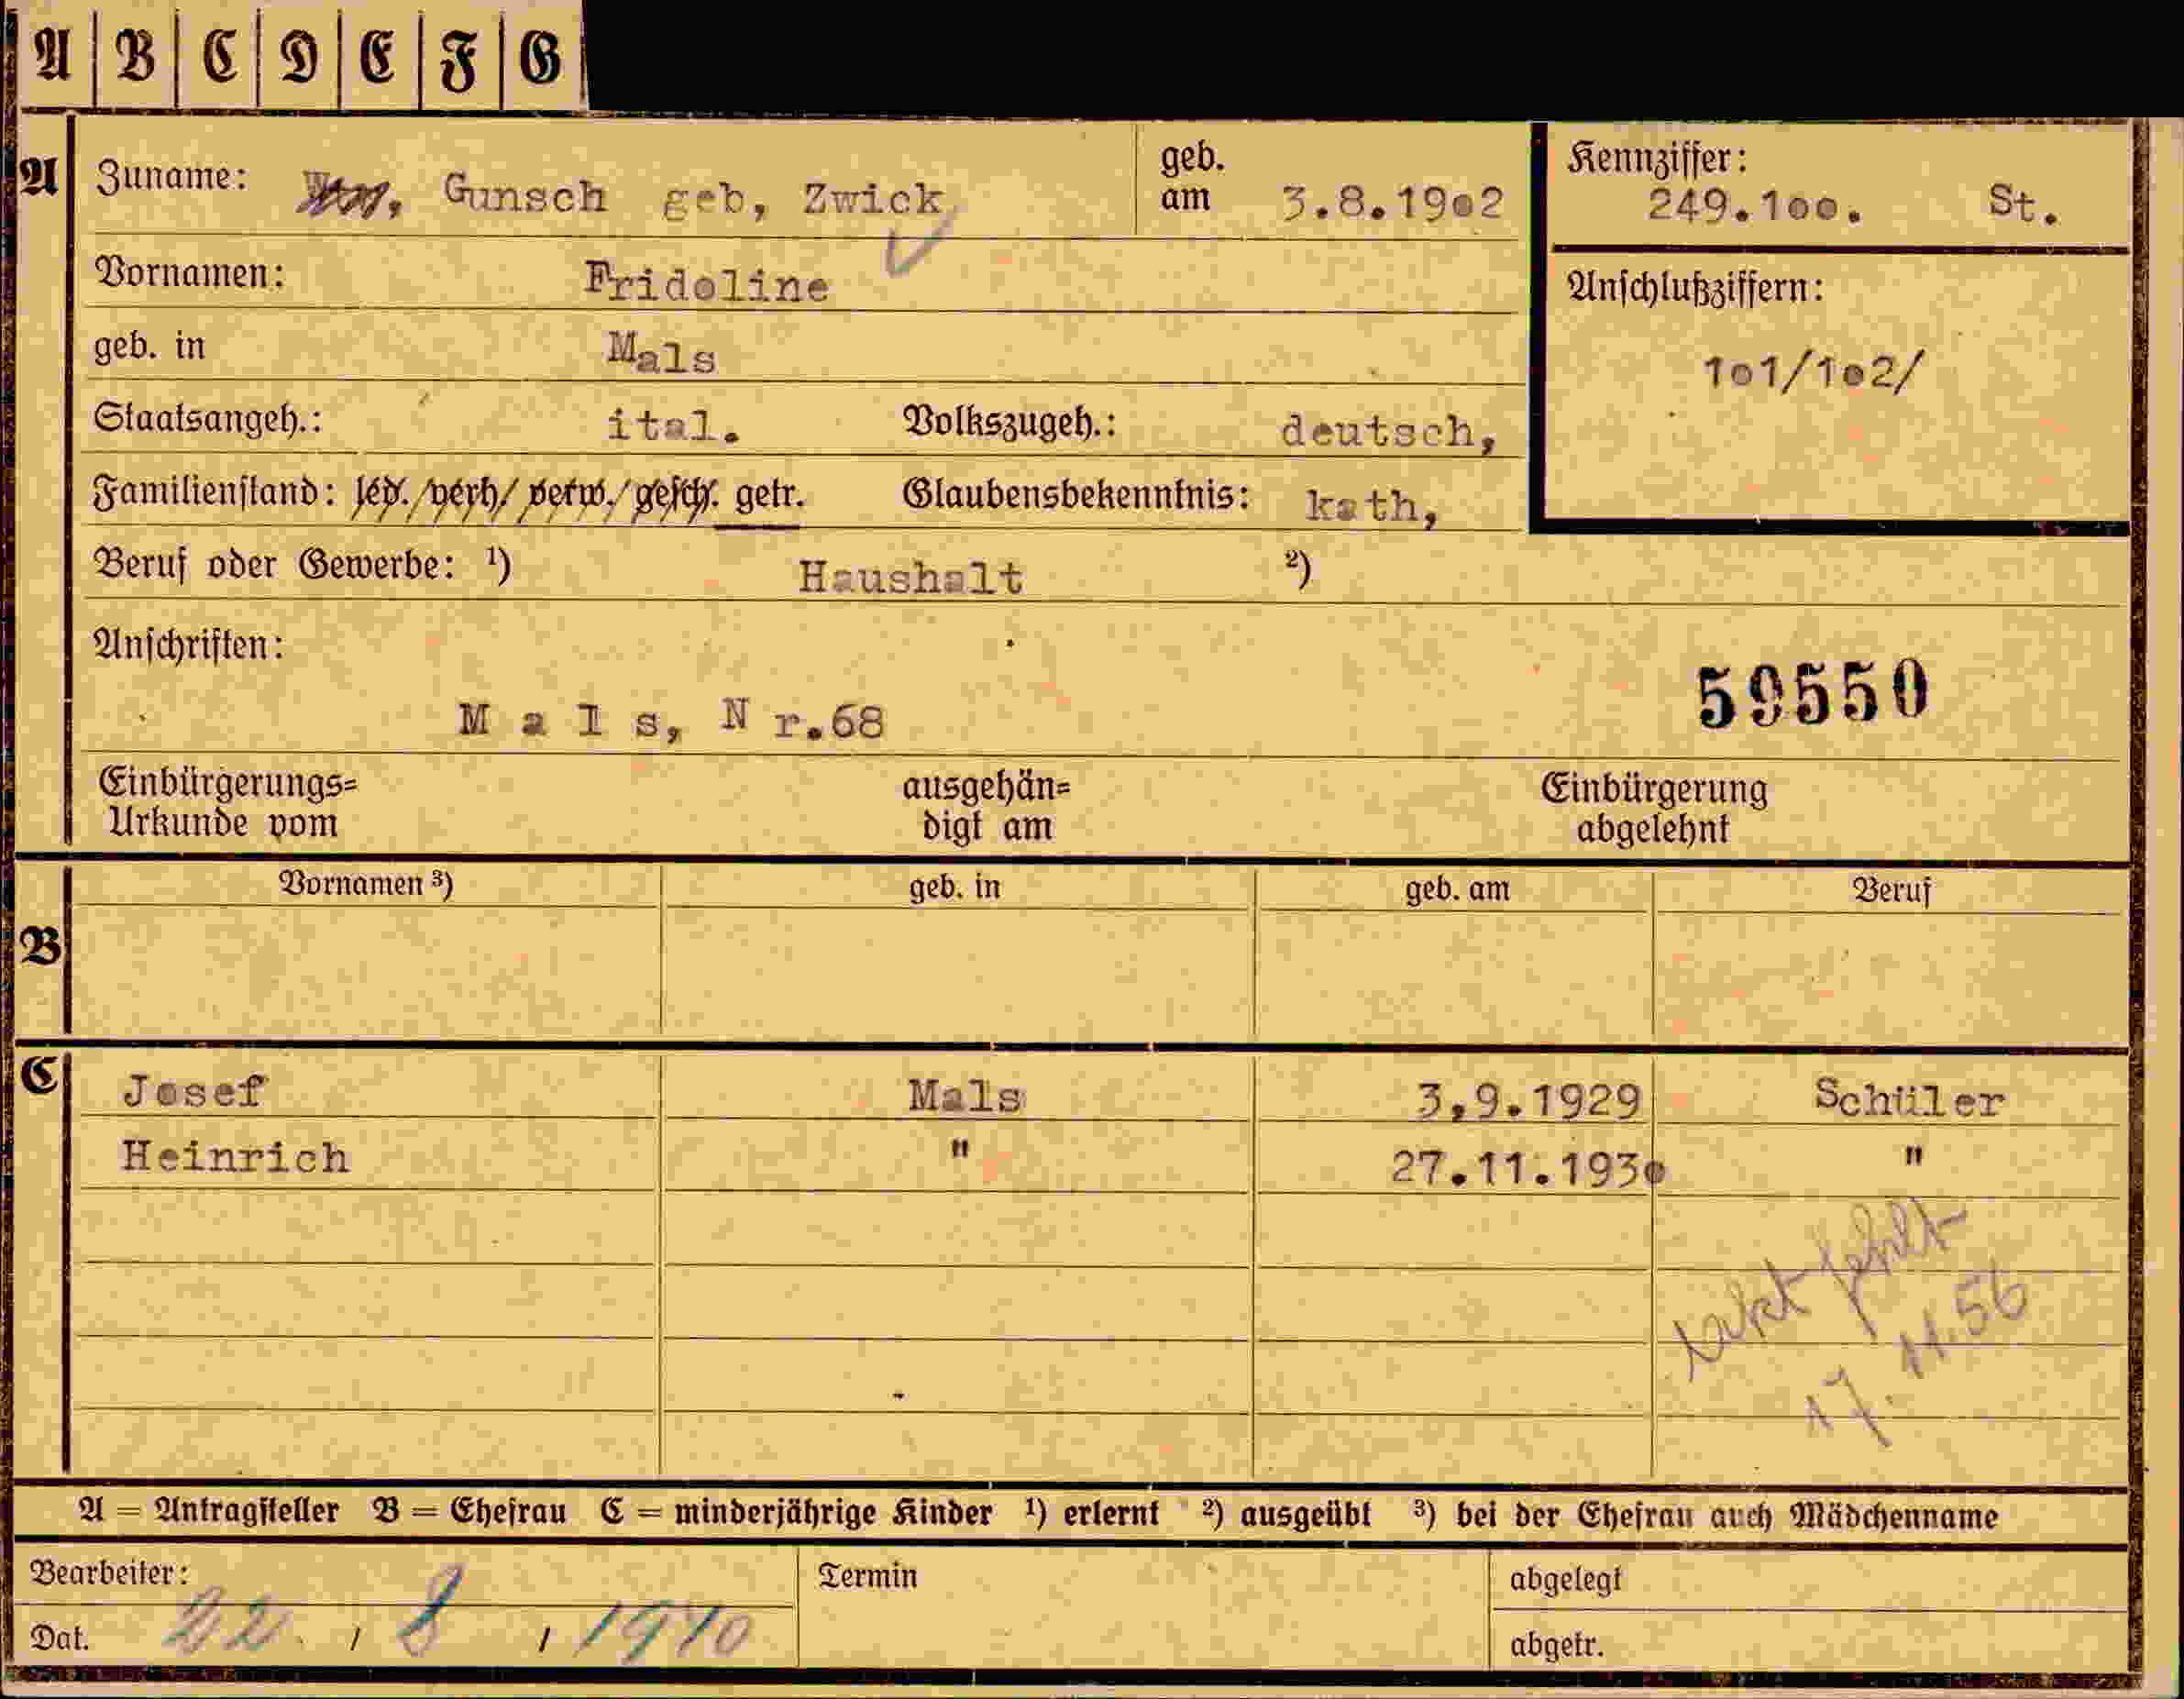 A B C D E F G
A Zuname: Gunsch geb, Zwick geb. am 3.8.19o2 Kennziffer: 249.1oo. St.
Vornamen: Fridoline
Anschlußziffern:
geb. in Mals
1o1/1o2/
Staatsangeh.: ital. Volkszugeh.: deutsch,
Familienstand: led./verh/verw./gesch. getr. Glaubensbekenntnis: kath,
Beruf oder Gewerbe: 1) Haushalt 2)
Anschriften:
M a l s, N r.68
59550
Einbürgerungs=
Urkunde vom
ausgehän=
digt am
Einbürgerung
abgelehnt
B Vornamen 3) geb. in geb. am Beruf
C Josef Mals 3,9.1929 Schüler
Heinrich " 27.11.193o "
Akt fehlt
17. 11.56
A = Antragsteller B = Ehefrau C = minderjährige Kinder 1) erlernt 2) ausgeübt 3) bei der Ehefrau auch Mädchenname
Bearbeiter: Termin abgelegt
Dat. 22 / 8 / 1940 abgetr.